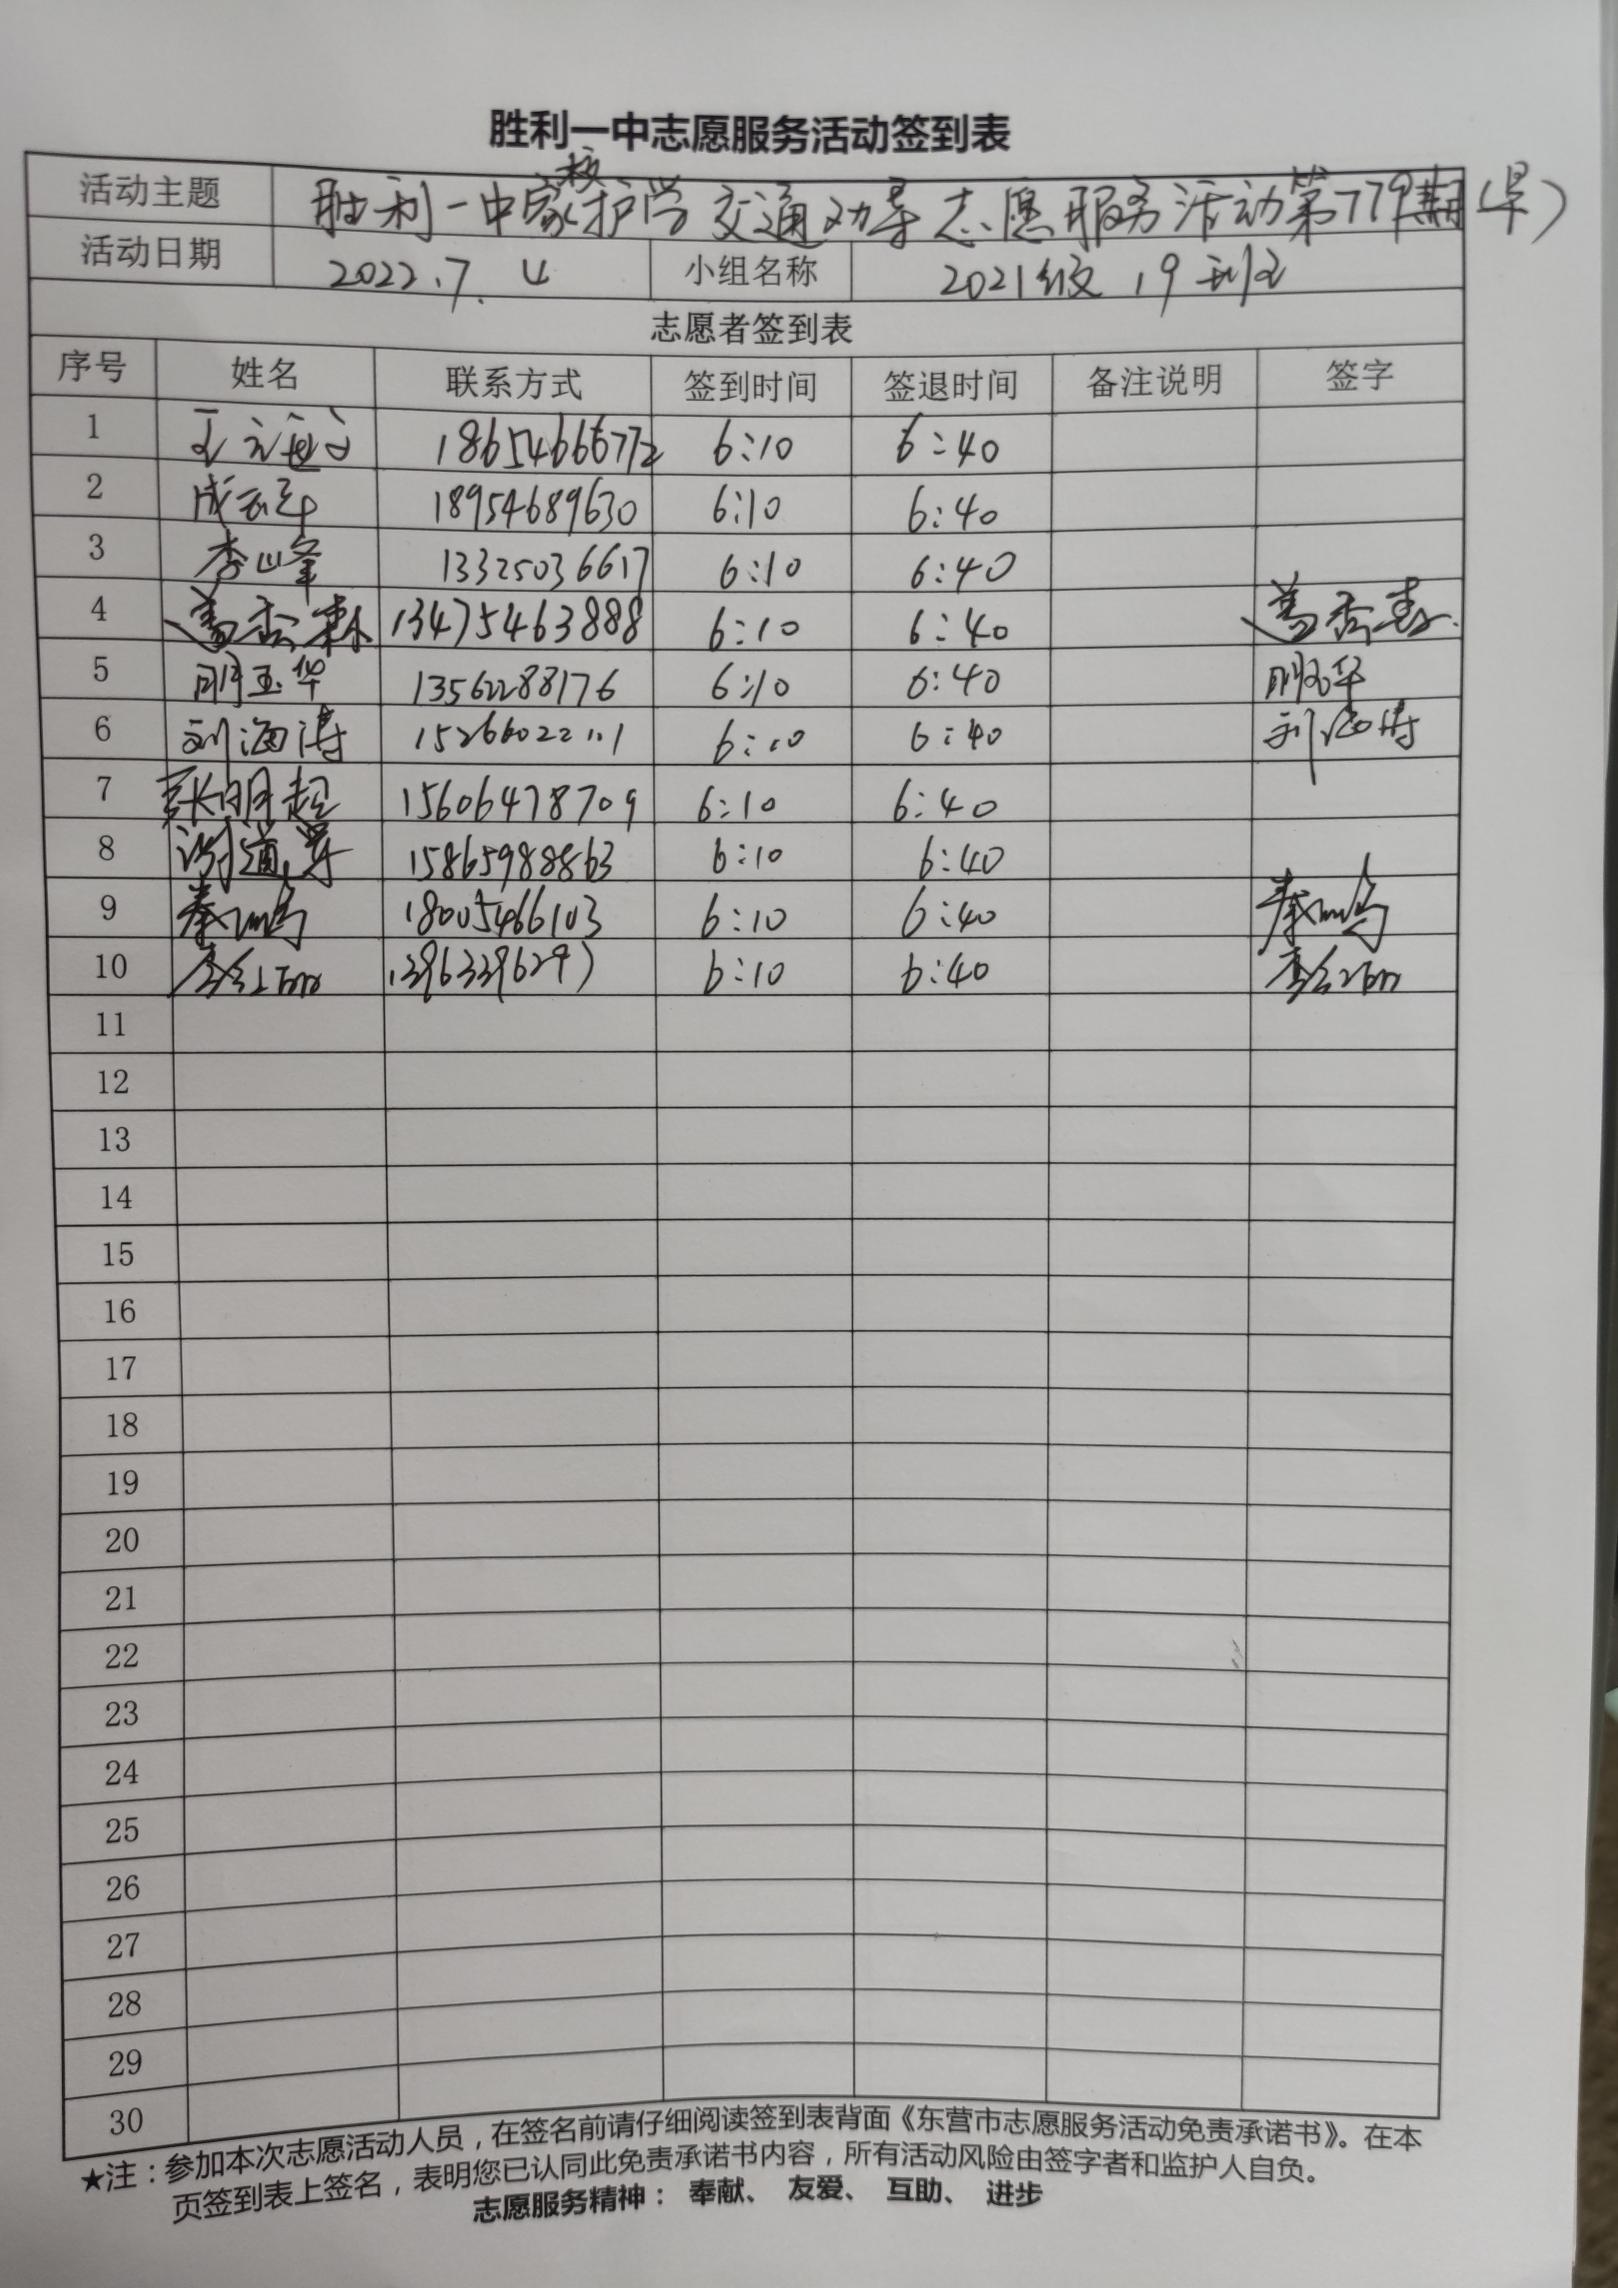 胜利一中志愿服务活动签到表
活动主题 胜利一中家校护学交通劝导志愿服务活动第779期(早)
活动日期 2022.7.4 小组名称 2021级19班
志愿者签到表
序号 姓名 联系方式 签到时间 签退时间 备注说明 签字
1 18654666772 6:10 6:40
2 成云华 18954689630 6:10 6:40
3 李山峰 13325036617 6:10 6:40
4 13475463888 6:10 6:40
5 明玉华 13562288176 6:10 6:40 明玉华
6 刘海涛 15266022111 6:10 6:40 刘海涛
7 张明超 15606478709 6:10 6:40
8 15865988863 6:10 6:40
9 秦鸣 18005466103 6:10 6:40 秦鸣
10 6:10 6:40
11
12
13
14
15
16
17
18
19
20
21
22
23
24
25
26
27
28
29
30
★注：参加本次志愿活动人员，在签名前请仔细阅读签到表背面《东营市志愿服务活动免责承诺书》。在本
页签到表上签名，表明您已认同此免责承诺书内容，所有活动风险由签字者和监护人自负。
志愿服务精神： 奉献、 友爱、 互助、 进步